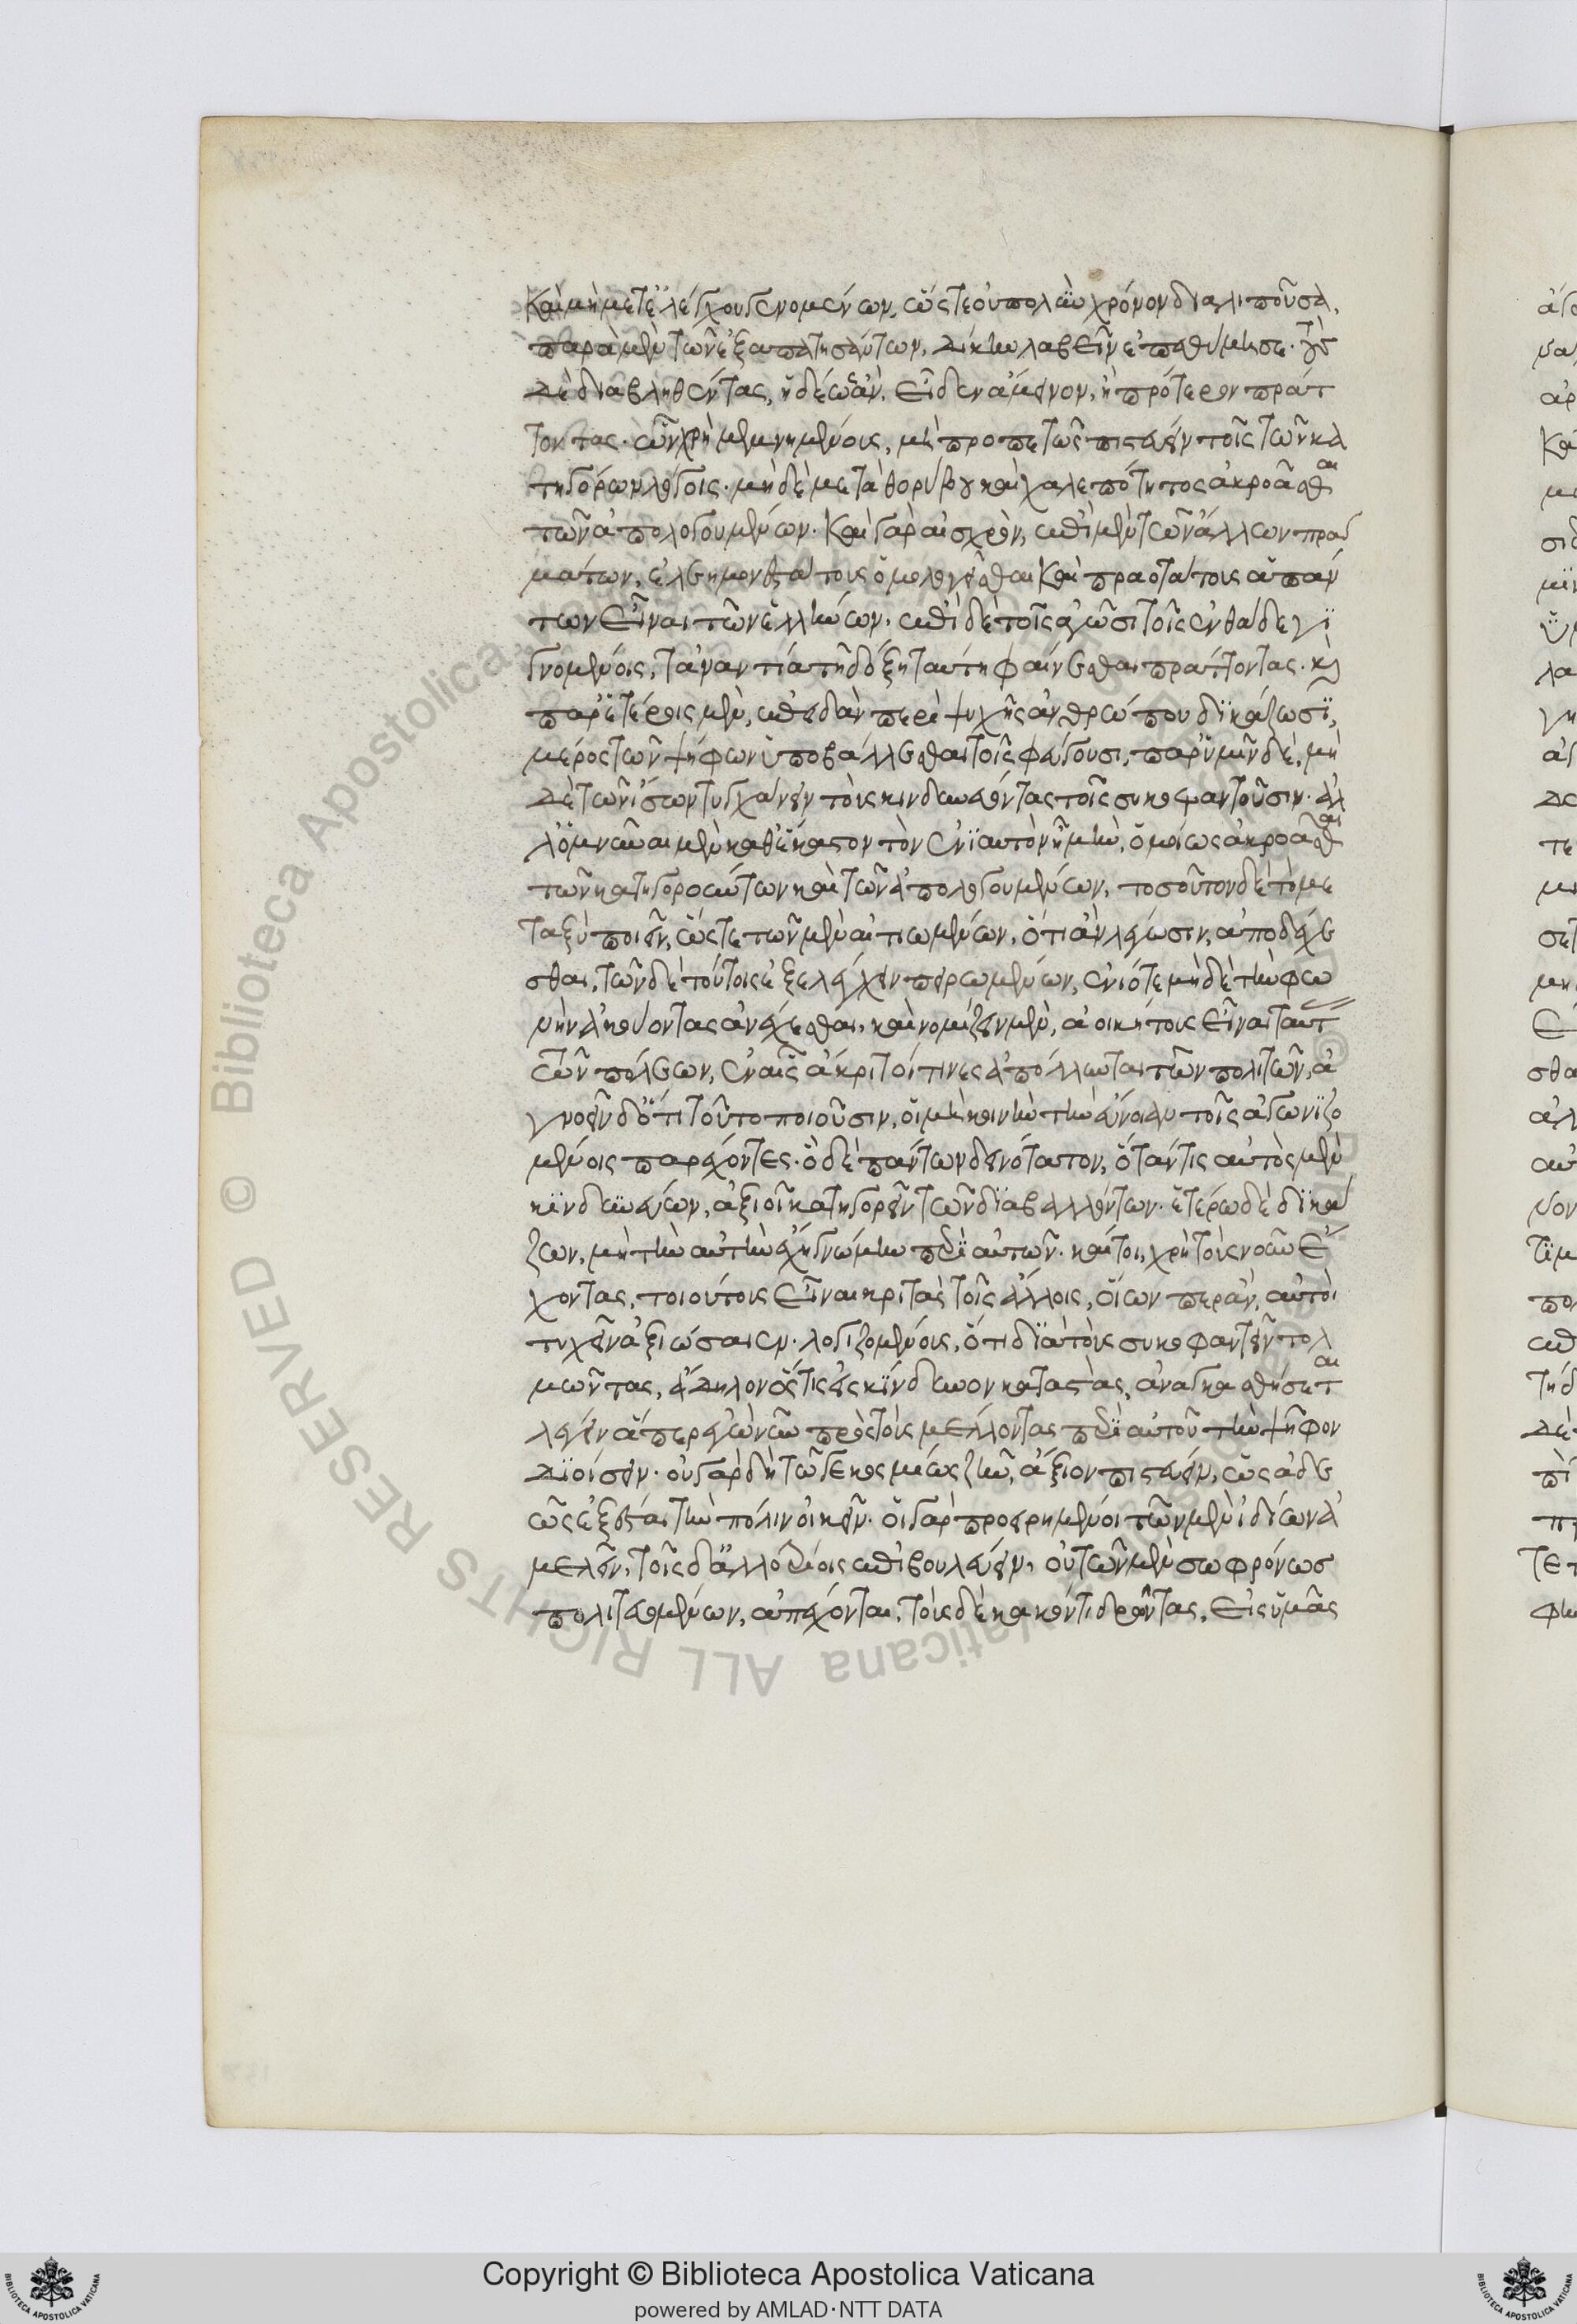 Καὶ μὴ μετ' ἐλέγχου γενομένων, ὥστε οὐ πολὺν χρόνον διαλιποῦσα,
παρὰ μὲν τῶν ἐξαπατησάντων, δίκην λαβεῖν ἐπεθύμησε. τοὺς
δὲ διαβληθέντας, ἡδέως ἂν εἶδεν ἄμεινον, ἢ πρότερον πράτ
τοντας. ὧν χρὴ μεμνημένους, μὴ προπετῶς πιστεύειν τοῖς τῶν κα
τηγόρων λόγοις. μηδὲ μετὰ θορύβου καὶ χαλεπότητος ἀκροᾶσθαι
τῶν ἀπολογουμένων. Καὶ γὰρ αἰσχρὸν, ἐπὶ μὲν τῶν ἄλλων πραγ
μάτων, ἐλεημονεστάτους ὁμολογεῖσθαι Καὶ πραοτάτους ἁπάν
των εἶναι τῶν ἑλλήνων. ἐπὶ δὲ τοῖς ἀγῶσι τοῖς ἐνθάδε γϊ
γνομένοις, τἀναντία τῆ δόξη ταύτη φαίνεσθαι πράττοντας. καὶ
παρ' ἑτέροις μὲν, ἐπειδὰν περὶ ψυχῆς ἀνθρώπου δϊκάζωσϊ,
μέρος τῶν ψήφων ὑποβάλλεσθαι τοῖς φεύγουσι. παρ' ὑμῖν δὲ, μη
δὲ τῶν ἴσων τυγχάνειν τοὺς κινδυνεύοντας τοῖς συκοφαντοῦσιν. ἀλ
λ' ὀμνύναι μὲν καθ' ἕκαστον τὸν ἐνϊαυτὸν ἦ μὴν, ὁμοίως ἀκροᾶσθαι
τῶν κατηγορούντων καὶ τῶν ἀπολογουμένων, τοσοῦτον δὲ τὸ με
ταξὺ ποιεῖν, ὥστε τῶν μὲν αἰτιωμένων, ὅτι ἂν λέγωσιν, ἀποδέχε
σθαι, τῶν δὲ τούτους ἐξελέγχειν πειρωμένων, ἐνίοτε μηδὲ τὴν φω
νὴν ἀκούοντας ἀνέχεσθαι. καὶ νομίζειν μὲν, ἀοικήτους εἶναι ταύτ
τῶν πόλεων, ἐν αἷς ἄκριτοί τινες ἀπόλλυνται τῶν πολιτῶν, ἀ
γνοεῖν δ' ὅτι τοῦτο ποιοῦσιν, οἱ μὴ κοινὴν τὴν εὔνοιαν τοῖς ἀγωνϊζο
μένοις παρέχοντες. ὃ δὲ πάντων δεινότατον, ὅταν τις αὐτὸς μὲν
κϊνδυνεύων, ἀξιοῖ κατηγορεῖν τῶν δϊαβαλλόντων. ἑτέρω δὲ δϊκά
ζων, μὴ τὴν αὐτὴν ἔχη γνώμην περὶ αὐτῶν. καίτοι, χρὴ τοὺς νοῦν ἔ
χοντας, τοιούτους εἶναι κριτὰς τοῖς ἄλλοις, οἵων περ ἂν, αὐτοὶ
τυχεῖν ἀξιώσαιεν. λογιζομένους, ὅτι δϊὰ τοὺς συκοφαντεῖν τολ
μῶντας, ἄδηλον ὅστις εἰς κϊνδυνον καταστὰς, ἀναγκασθήσεται
λέγειν ἅπερ ἐγὼ νῦν πρὸς τοὺς μέλλοντας περὶ αὐτοῦ τὴν ψῆφον
δϊοίσειν. οὐ γὰρ δὴ τῶ γε κοσμίως ζῆν, ἄξιον πιστεύειν, ὡς ἀδε
ῶς ἐξέσται τὴν πόλιν οἰκεῖν. οἱ γὰρ προηρημένοι τῶν μὲν ἰδίων ἀ
μελεῖν, τοῖς δ' ἀλλοτρίοις ἐπιβουλεύειν, οὐ τῶν μὲν σωφρόνως
πολιτευομένων, ἀπέχονται, τοὺς δὲ κακόν τι δρῶντας, εἰς ὑμᾶς